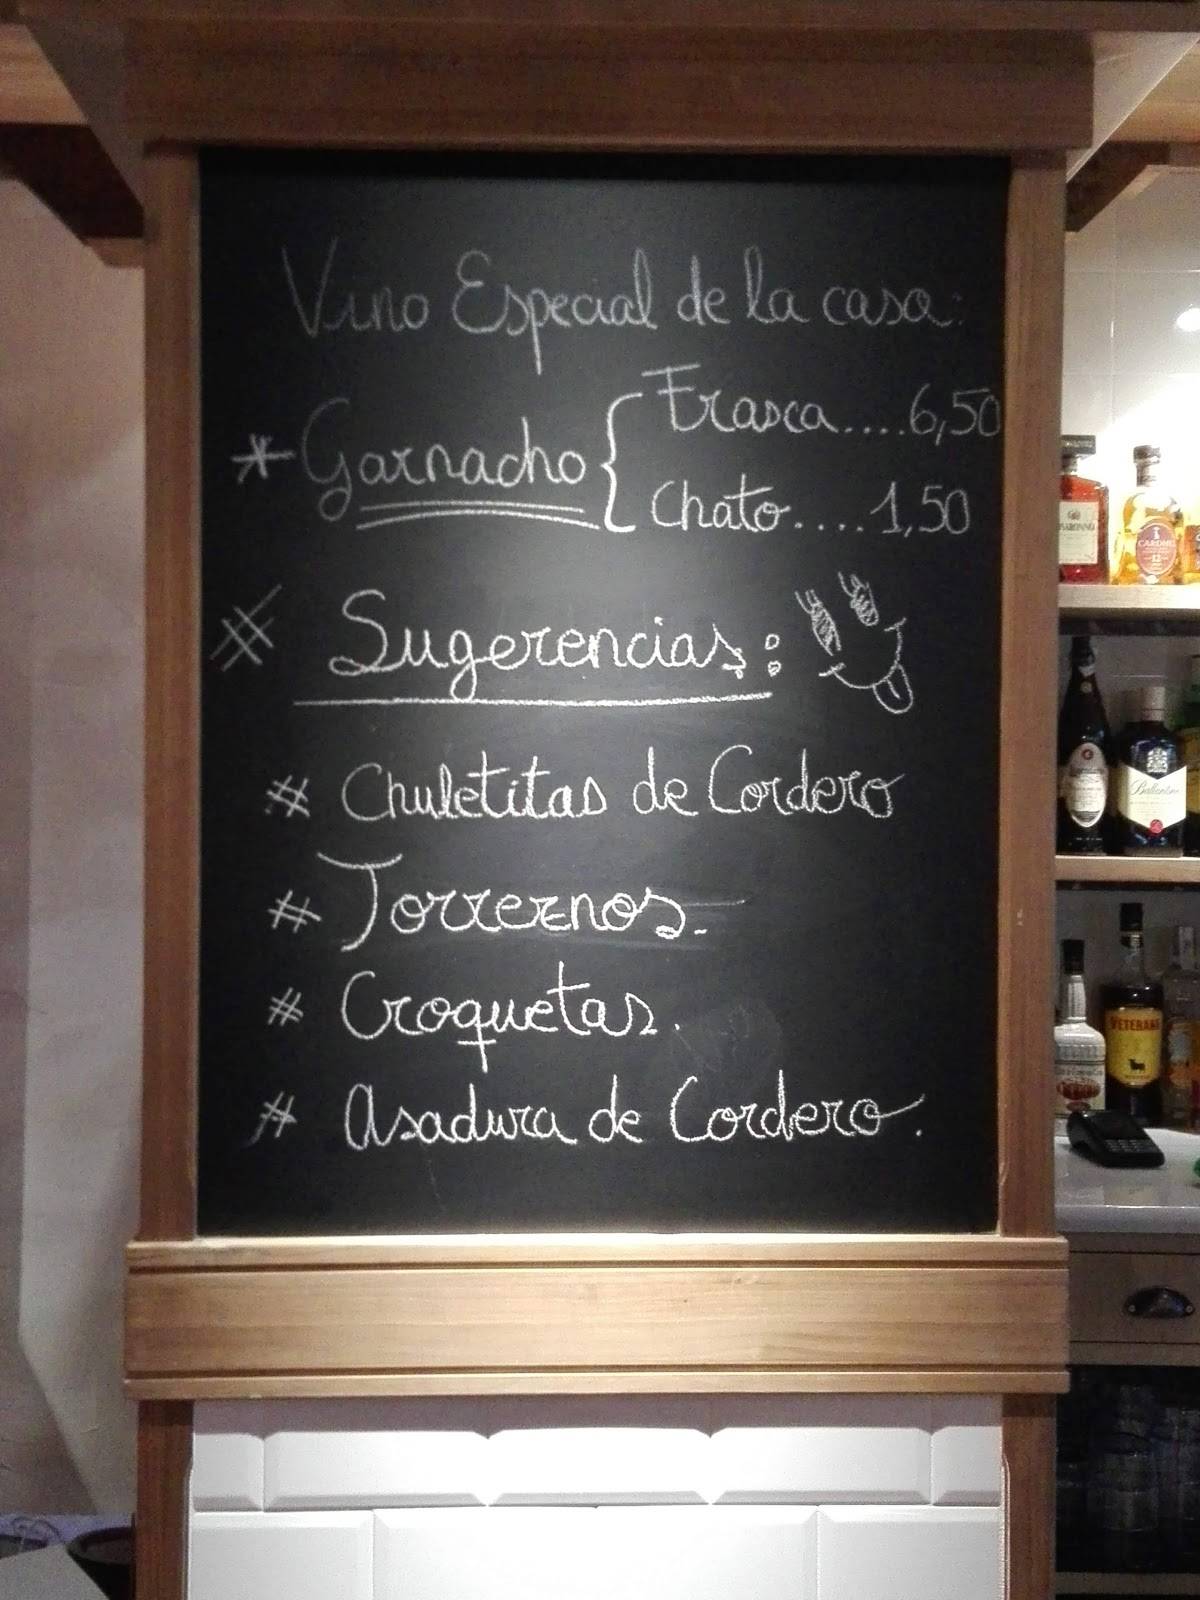 Vino Especial de la casa:
* Garnacho { Frasca....6,50
Chato....1,50
# Sugerencias:
# Chuletitas de Cordero
# Torrernos.
# Croquetas.
# Asadura de Cordero.
CARDHU
12
Ballantine's
VETERANO